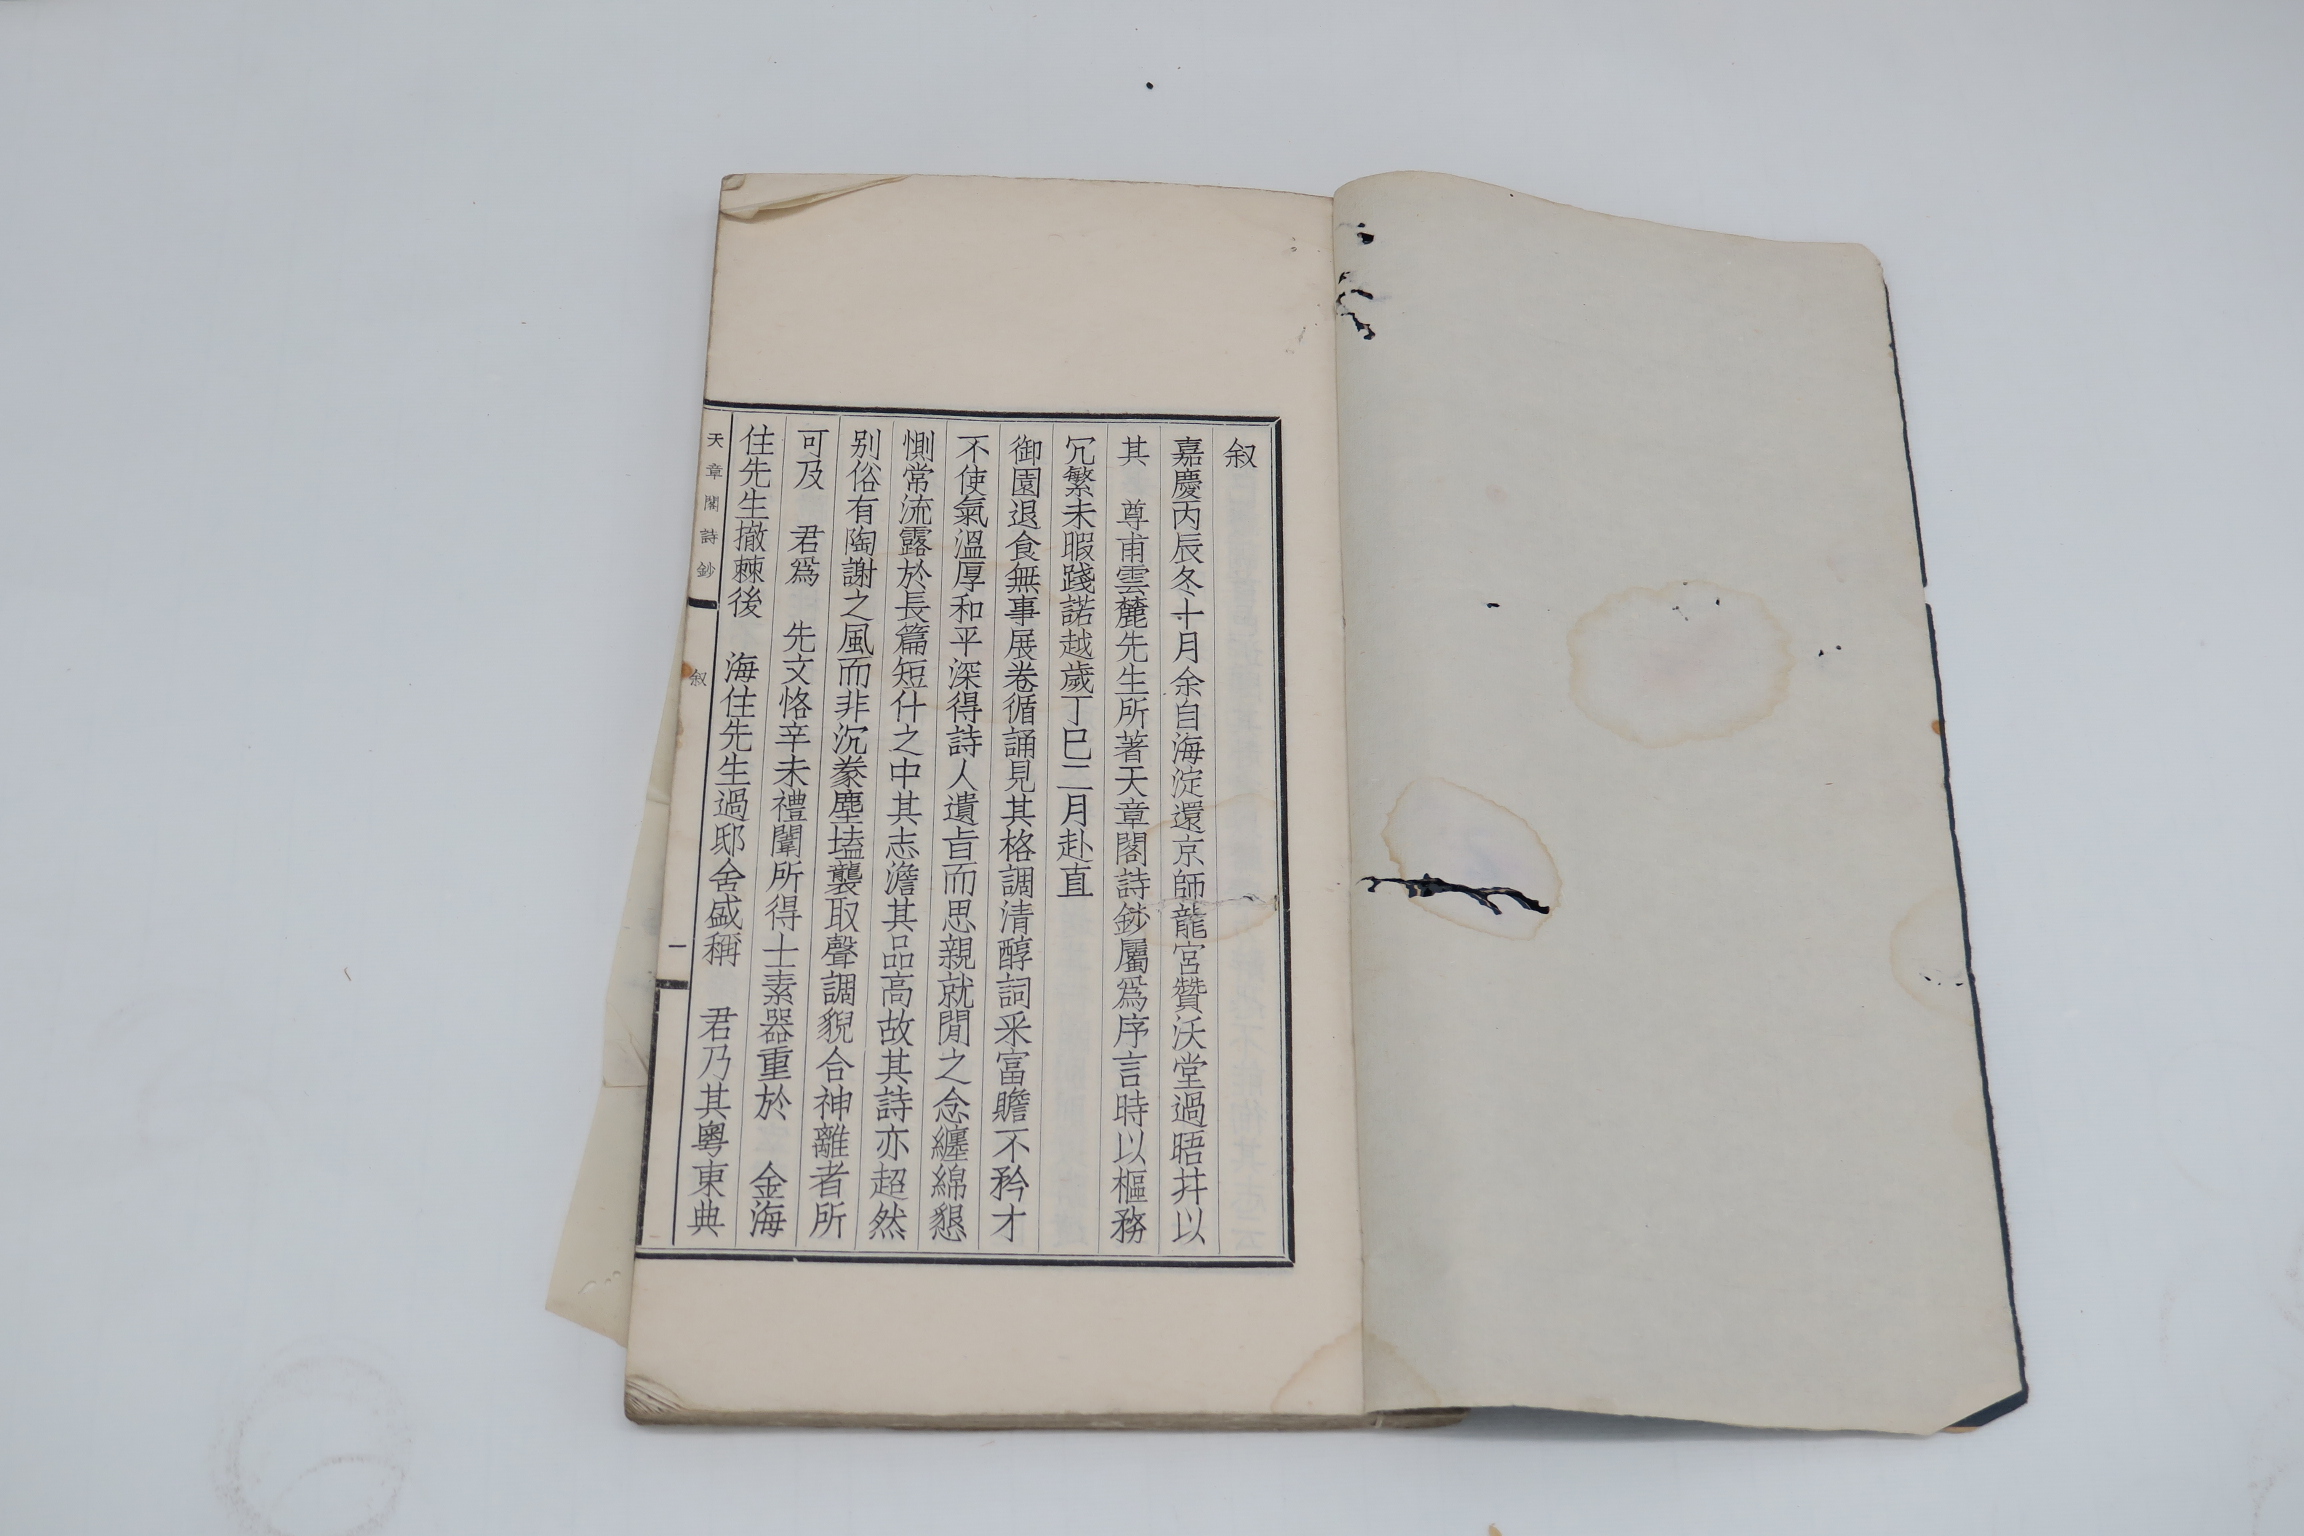 叙
嘉慶丙辰冬十月余自海淀還京師龍宮贊沃堂過晤幷以
其　尊甫雲麓先生所著天章閣詩鈔屬爲序言時以樞務
冗繁未暇踐諾越歲丁巳二月赴直
御園退食無事展卷循誦見其格調清醇詞采富贍不矜才
不使氣溫厚和平深得詩人遺旨而思親就閒之念纏綿懇
惻常流露於長篇短什之中其志澹其品高故其詩亦超然
別俗有陶謝之風而非沉豢塵𡏖襲取聲調貌合神離者所
可及　君爲　先文恪辛未禮闈所得士素器重於　金海
住先生撤棘後　海住先生過邸舍盛稱　君乃其粵東典
天章閣詩鈔
叙
一